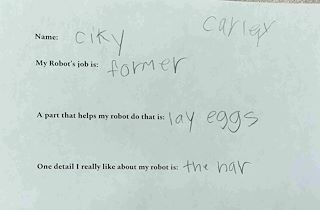 Carley
Name: ciky
My Robot's job is: former
A part that helps my robot do that is: lay eggs
One detail I really like about my robot is: the har